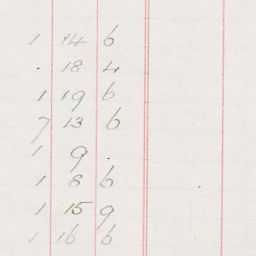 1 14 6
. 18 4
1 19 6
7 13 6
1 9 .
1 8 6
1 15 9
1 16 6